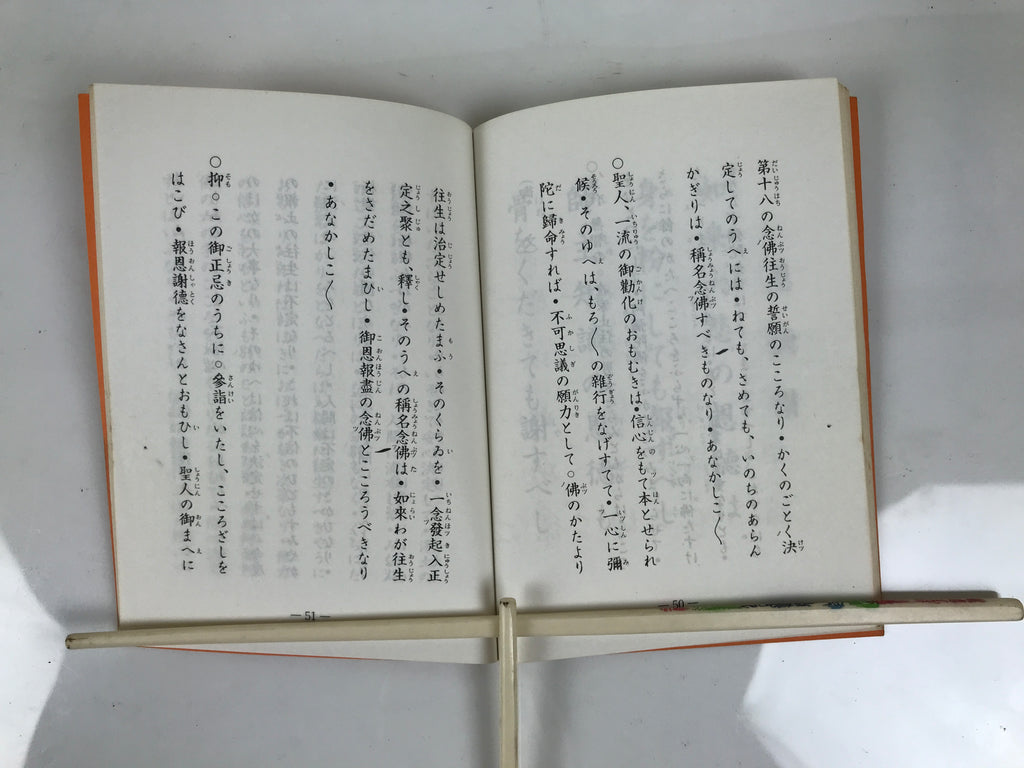 第十八の念佛往生の誓願のこころなり・かくのごとく決
定してのうへには・ねても、さめても、いのちのあらん
かぎりは・稱名念佛すべきものなり・あなかしこ〱
○聖人、一流の御勸化のおもむきは・信心をもて本とせられ
候・そのゆへは、もろ〱の雜行をなげすてて・一心に彌
陀に歸命すれば・不可思議の願力として○佛のかたより
— 50 —
往生は治定せしめたまふ・そのくらゐを・一念發起入正
定之聚とも、釋し・そのうへの稱名念佛は・如來わが往生
をさだめたまひし・御恩報盡の念佛とこころうべきなり
・あなかしこ〱
○抑○この御正忌のうちに○參詣をいたし、こころざしを
はこび・報恩謝德をなさんとおもひし・聖人の御まへに
— 51 —